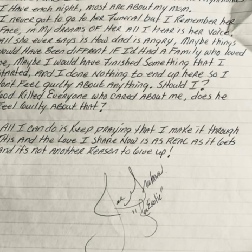 I Have each night, most are about my mom.
I never got to go to her Funeral but I Remember her
Face, in my dreams of Her all I Hear is her voice.
All she ever says is How and is Angry, Maybe things
would Have been different If I'd Had A Family who loved
me, Maybe I would have Finished Something that I
started, And I done Nothing to end up here so I
Feel guilty About Anything. Should I?
God killed Everyone who cared About me, does he
Feel Guilty About that?
All I can do is Keep praying that I make it through
This and the Love I Share Now is As Real As it gets
And it's not Another Reason to give up!